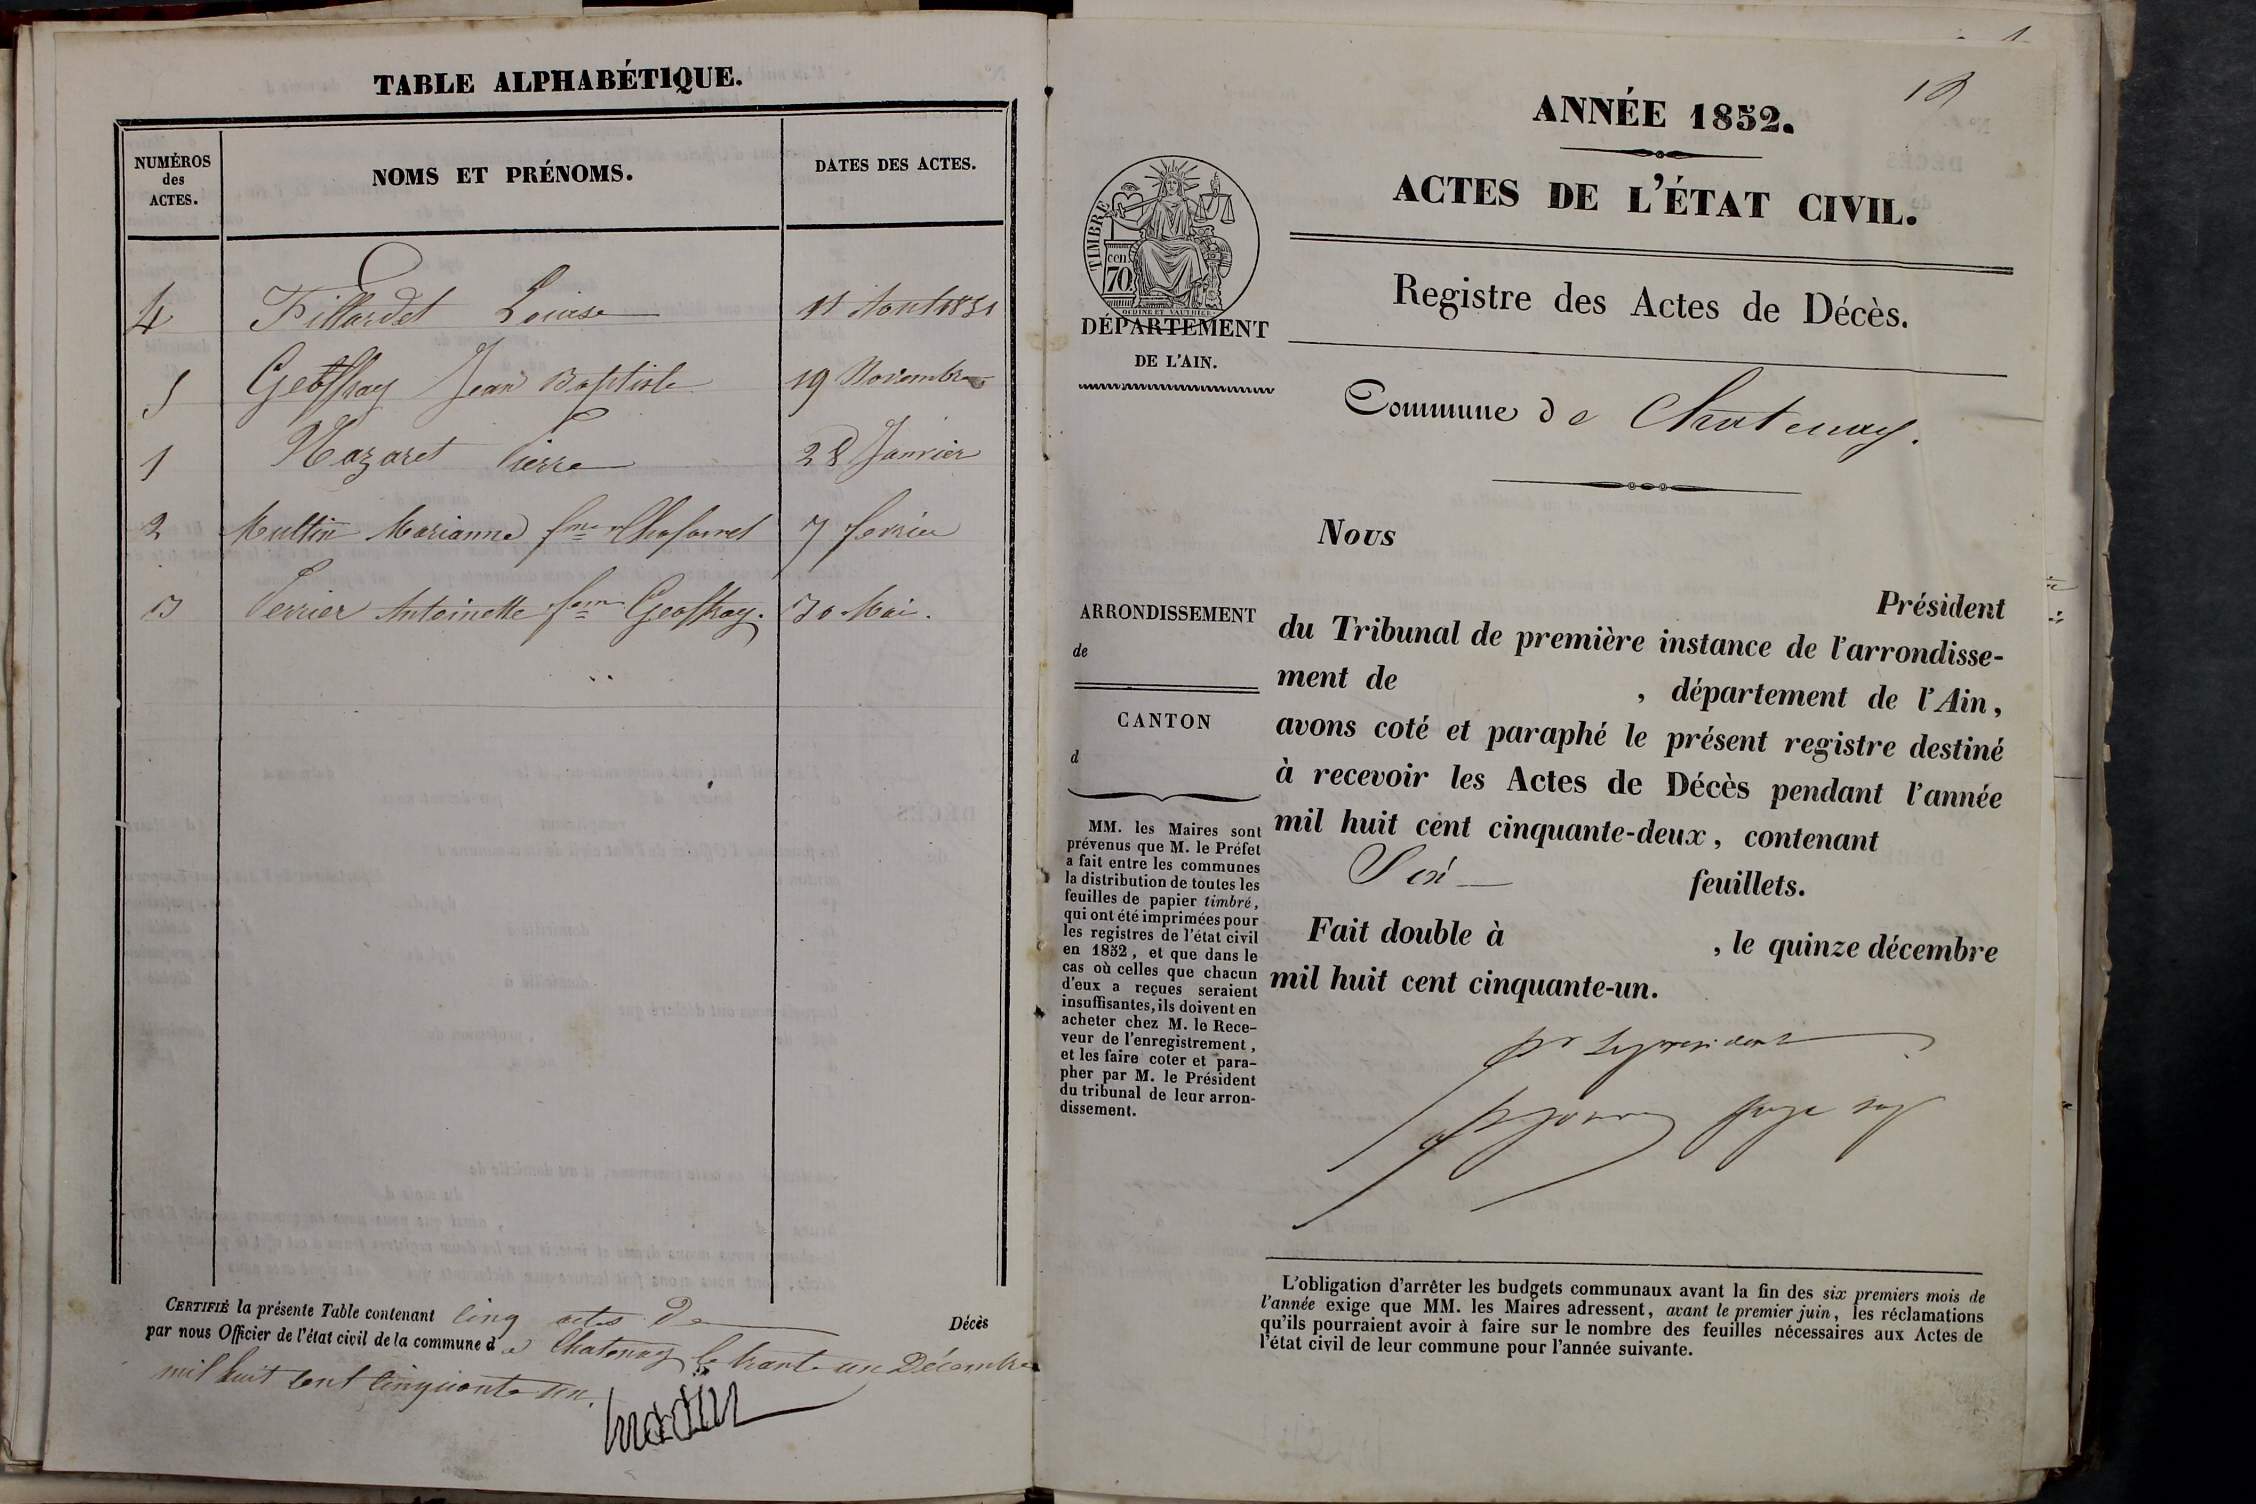 TABLE ALPHABÉTIQUE.
NUMÉROS
des
ACTES.
NOMS ET PRÉNOMS.
DATES DES ACTES.
4 Fillardet Louise 11 Aout 1851
5 Geoffray Jean Baptiste 19 Novembre
1 Nazaret Pierre 28 Janvier
2 Multin Marianne fme 7 fevrier
3 Perrier Antoinette fem Geoffray. 30 Mai.
CERTIFIÉ la présente Table contenant cinq actes De Décès
par nous Officier de l'état civil de la commune d e Chatenay le trante un Décembre
mil huit cent cinquante un.
18
ANNÉE 1852.
ACTES DE L'ÉTAT CIVIL.
TIMBRE
cen.
70
DÉPARTEMENT
DE L'AIN.
Registre des Actes de Décès.
Commune de Chatenay.
Nous
Président
du Tribunal de première instance de l'arrondisse-
ment de , département de l'Ain,
avons coté et paraphé le présent registre destiné
à recevoir les Actes de Décès pendant l'année
mil huit cent cinquante-deux, contenant
Six feuillets.
Fait double à , le quinze décembre
mil huit cent cinquante-un.
pr Le president
juge
ARRONDISSEMENT
de
CANTON
d
MM. les Maires sont
prévenus que M. le Préfet
a fait entre les communes
la distribution de toutes les
feuilles de papier timbré,
qui ont été imprimées pour
les registres de l'état civil
en 1852, et que dans le
cas où celles que chacun
d'eux a reçues seraient
insuffisantes, ils doivent en
acheter chez M. le Rece-
veur de l'enregistrement,
et les faire coter et para-
pher par M. le Président
du tribunal de leur arron-
dissement.
L'obligation d'arrêter les budgets communaux avant la fin des six premiers mois de
l'année exige que MM. les Maires adressent, avant le premier juin, les réclamations
qu'ils pourraient avoir à faire sur le nombre des feuilles nécessaires aux Actes de
l'état civil de leur commune pour l'année suivante.